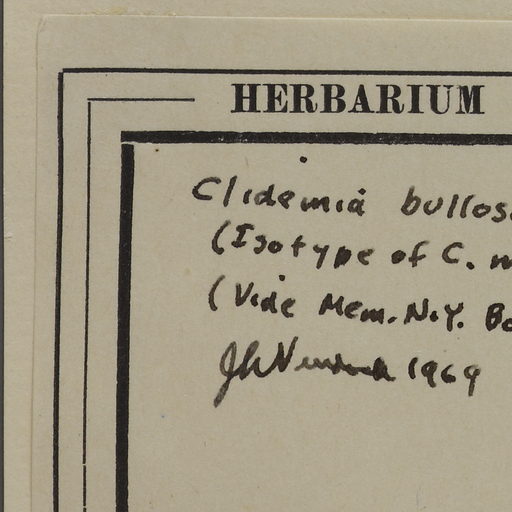 HERBARIUM
Clidemia bullos
(Isotype of C. m
(Vide Mem. N.Y. Bo
1969